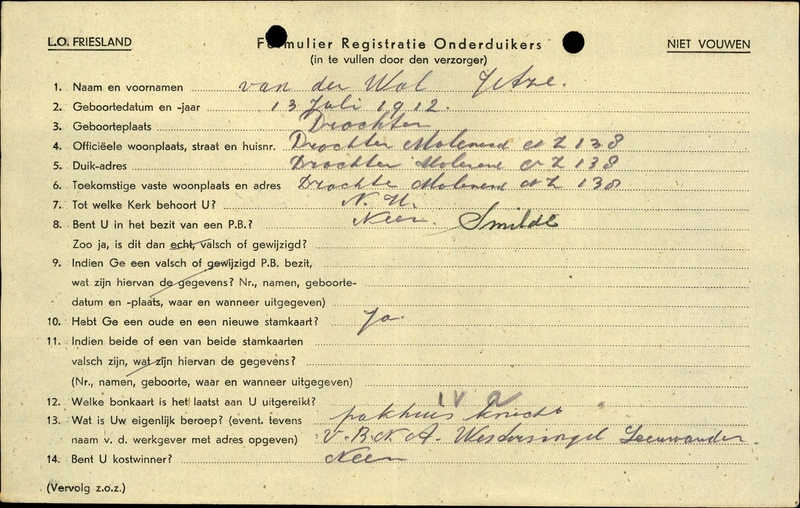 L.O. FRIESLAND Formulier Registratie Onderduikers NIET VOUWEN
(in te vullen door den verzorger)
1. Naam en voornamen van der Wal Jetze.
2. Geboortedatum en -jaar 13 Juli 1912.
3. Geboorteplaats Drachten
4. Officiëele woonplaats, straat en huisnr. Drachten Molenend Z 138
5. Duik-adres Drachten Molenend Z 138
6. Toekomstige vaste woonplaats en adres Drachte Molenend Z 138
7. Tot welke Kerk behoort U? N.H.
8. Bent U in het bezit van een P.B.? Neen. Smilde
Zoo ja, is dit dan echt, valsch of gewijzigd?
9. Indien Ge een valsch of gewijzigd P.B. bezit,
wat zijn hiervan de gegevens? Nr., namen, geboorte-
datum en -plaats, waar en wanneer uitgegeven)
10. Hebt Ge een oude en een nieuwe stamkaart? Ja.
11. Indien beide of een van beide stamkaarten
valsch zijn, wat zijn hiervan de gegevens?
(Nr., namen, geboorte, waar en wanneer uitgegeven)
12. Welke bonkaart is het laatst aan U uitgereikt?
13. Wat is Uw eigenlijk beroep? (event. tevens pakhuis knecht
naam v. d. werkgever met adres opgeven) V.B.N.A. Westersingel Leeuwarden.
14. Bent U kostwinner? Neen
(Vervolg z.o.z.)